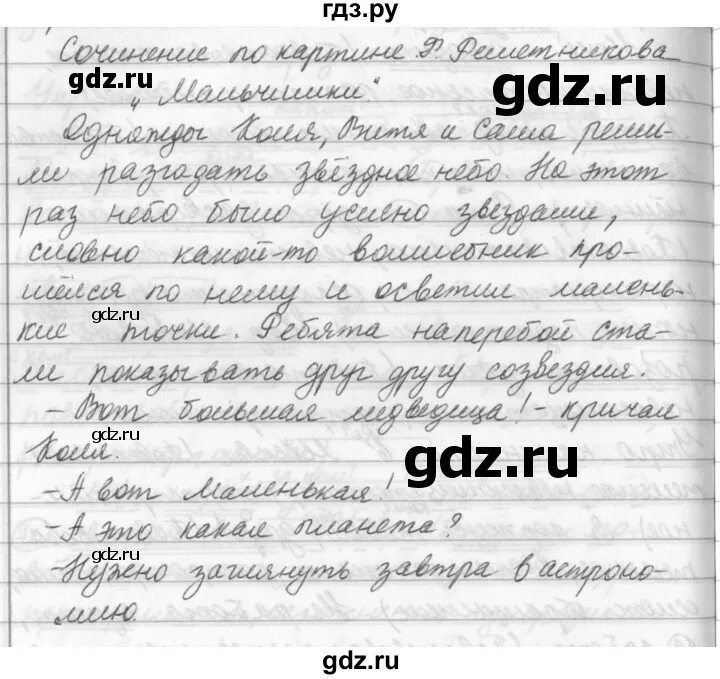 гдз.ру
Сочинение по картине Ф. Решетникова
gdz.ru
„Мальчишки."
gdz.ru
Однажды Коля, Витя и Саша реши-
ли разгадать звёздное небо. На этот
раз небо было усеяно звездами,
словно какой-то волшебник про-
шёлся по нему и осветил малень-
gdz.ru
кие точки. Ребята наперебой ста-
ли показывать друг другу созвездия.
- Вот большая медведица! - кричал
gdz.ru
Коля.
gdz.ru
- А вот маленькая!
- А это какая планета?
gdz.ru
- Нужно заглянуть завтра в астроно-
мию.
gdz.ru